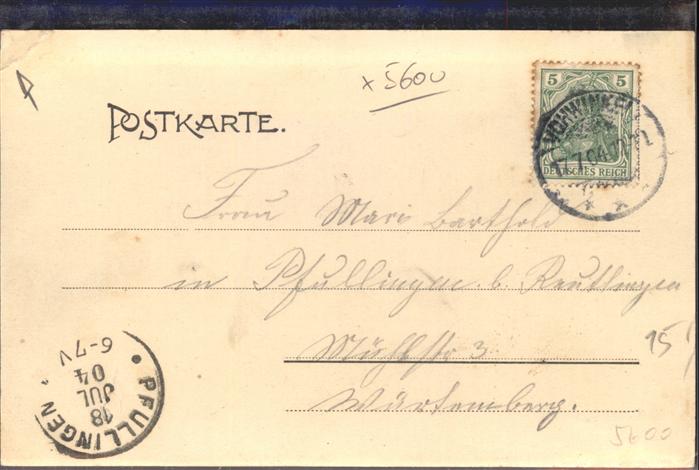 x 5600
POSTKARTE.
5 5
DEUTSCHES REICH
VOHWINKEL
17.7.04.
Frau Marie Barthold
in Pfullingen b. Reutlingen
Mühlstr 3
Würtemberg.
15
5600
PFULLINGEN
18
JUL
04
6-7V